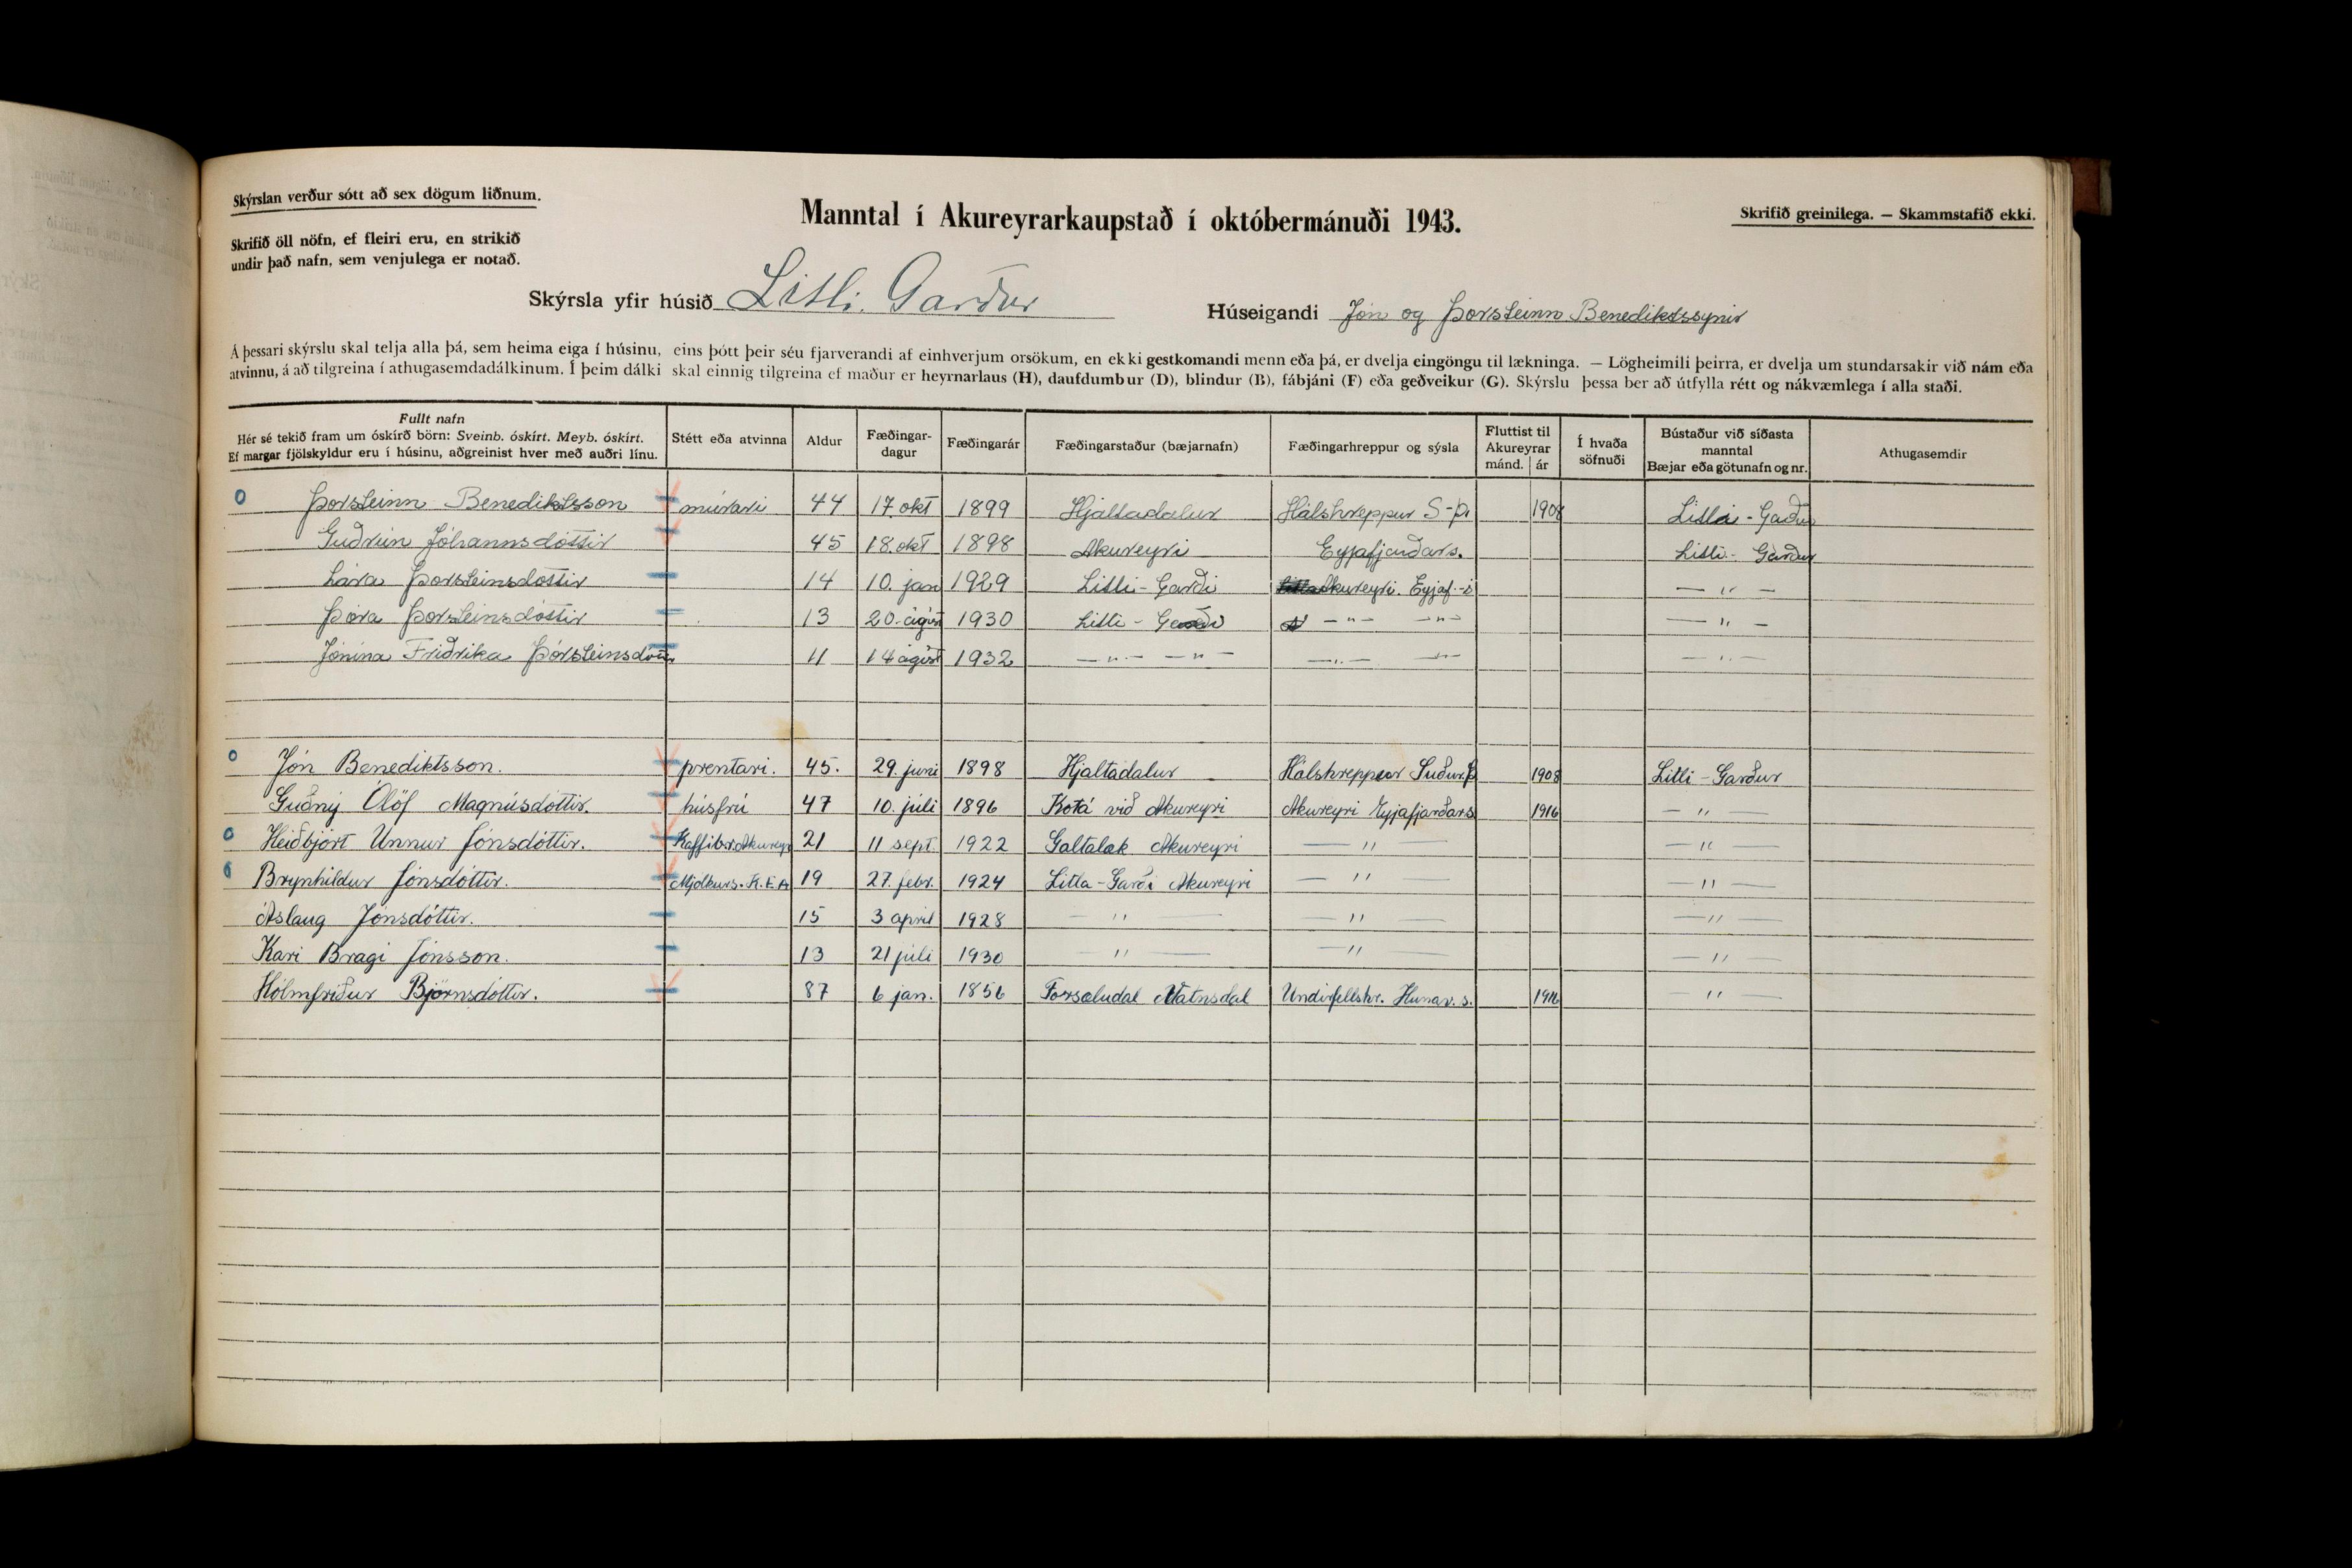 Skýrslan verður sótt að sex dögum liðnum.
Manntal í Akureyrarkaupstað í októbermánuði 1943.
Skrifið greinilega. — Skammstafið ekki.
Skrifið öll nöfn, ef fleiri eru, en strikið
undir það nafn, sem venjulega er notað.
Skýrsla yfir húsið Litli-Garður Húseigandi Jón og Þorsteinn Benediktssynir
Á þessari skýrslu skal telja alla þá, sem heima eiga í húsinu, eins þótt þeir séu fjarverandi af einhverjum orsökum, en ekki gestkomandi menn eða þá, er dvelja eingöngu til lækninga. — Lögheimili þeirra, er dvelja um stundarsakir við nám eða
atvinnu, á að tilgreina í athugasemdadálkinum. Í þeim dálki skal einnig tilgreina ef maður er heyrnarlaus (H), daufdumbur (D), blindur (B), fábjáni (F) eða geðveikur (G). Skýrslu þessa ber að útfylla rétt og nákvæmlega í alla staði.
Fullt nafn
Hér sé tekið fram um óskírð börn: Sveinb. óskírt. Meyb. óskírt.
Ef margar fjölskyldur eru í húsinu, aðgreinist hver með auðri línu.
Stétt eða atvinna
Aldur
Fæðingar-
dagur
Fæðingarár
Fæðingarstaður (bæjarnafn)
Fæðingarhreppur og sýsla
Fluttist til
Akureyrar
mánd. ár
Í hvaða
söfnuði
Bústaður við síðasta
manntal
Bæjar eða götunafn og nr.
Athugasemdir
Þorsteinn Benediktsson múrari 44 17. okt 1899 Hjaltadalur Hálshreppur S-þ. 1908 Litla-Garður
Guðrún Jóhannsdóttir 45 18. okt 1898 Akureyri Eyjafjarðars. Litli-Garður
Lára Þorsteinsdóttir 14 10. jan 1929 Litli-Garði Akureyri. Eyjaf.-s — " —
Þóra Þorsteinsdóttir 13 20. ágúst 1930 Litli-Garði — " — — " — — " —
Jónína Friðrika Þorsteinsdóttir 11 14 ágúst 1932 — " — — " — — " — — " — — " —
Jón Benediktsson. prentari. 45. 29. júní 1898 Hjaltadalur Hálshreppur Suður.Þ 1908 Litli-Garður
Guðný Ólöf Magnúsdóttir. húsfrú 47 10. júlí 1896 Kotá við Akureyri Akureyri Eyjafjarðars 1916 — " —
Heiðbjört Unnur Jónsdóttir. Kaffibr.Akureyr 21 11 sept. 1922 Galtalæk Akureyri — " — — " —
Brynhildur Jónsdóttir. Mjólkurs. K.E.A 19 27. febr. 1924 Litla-Garði Akureyri — " — — " —
Áslaug Jónsdóttir. 15 3 apríl 1928 — " — — " — — " —
Kári Bragi Jónsson. 13 21 júlí 1930 — " — — " — — " —
Hólmfríður Björnsdóttir. 87 6 jan. 1856 Forsæludal Vatnsdal Undirfellshr. Húnav.s. 1916 — " —